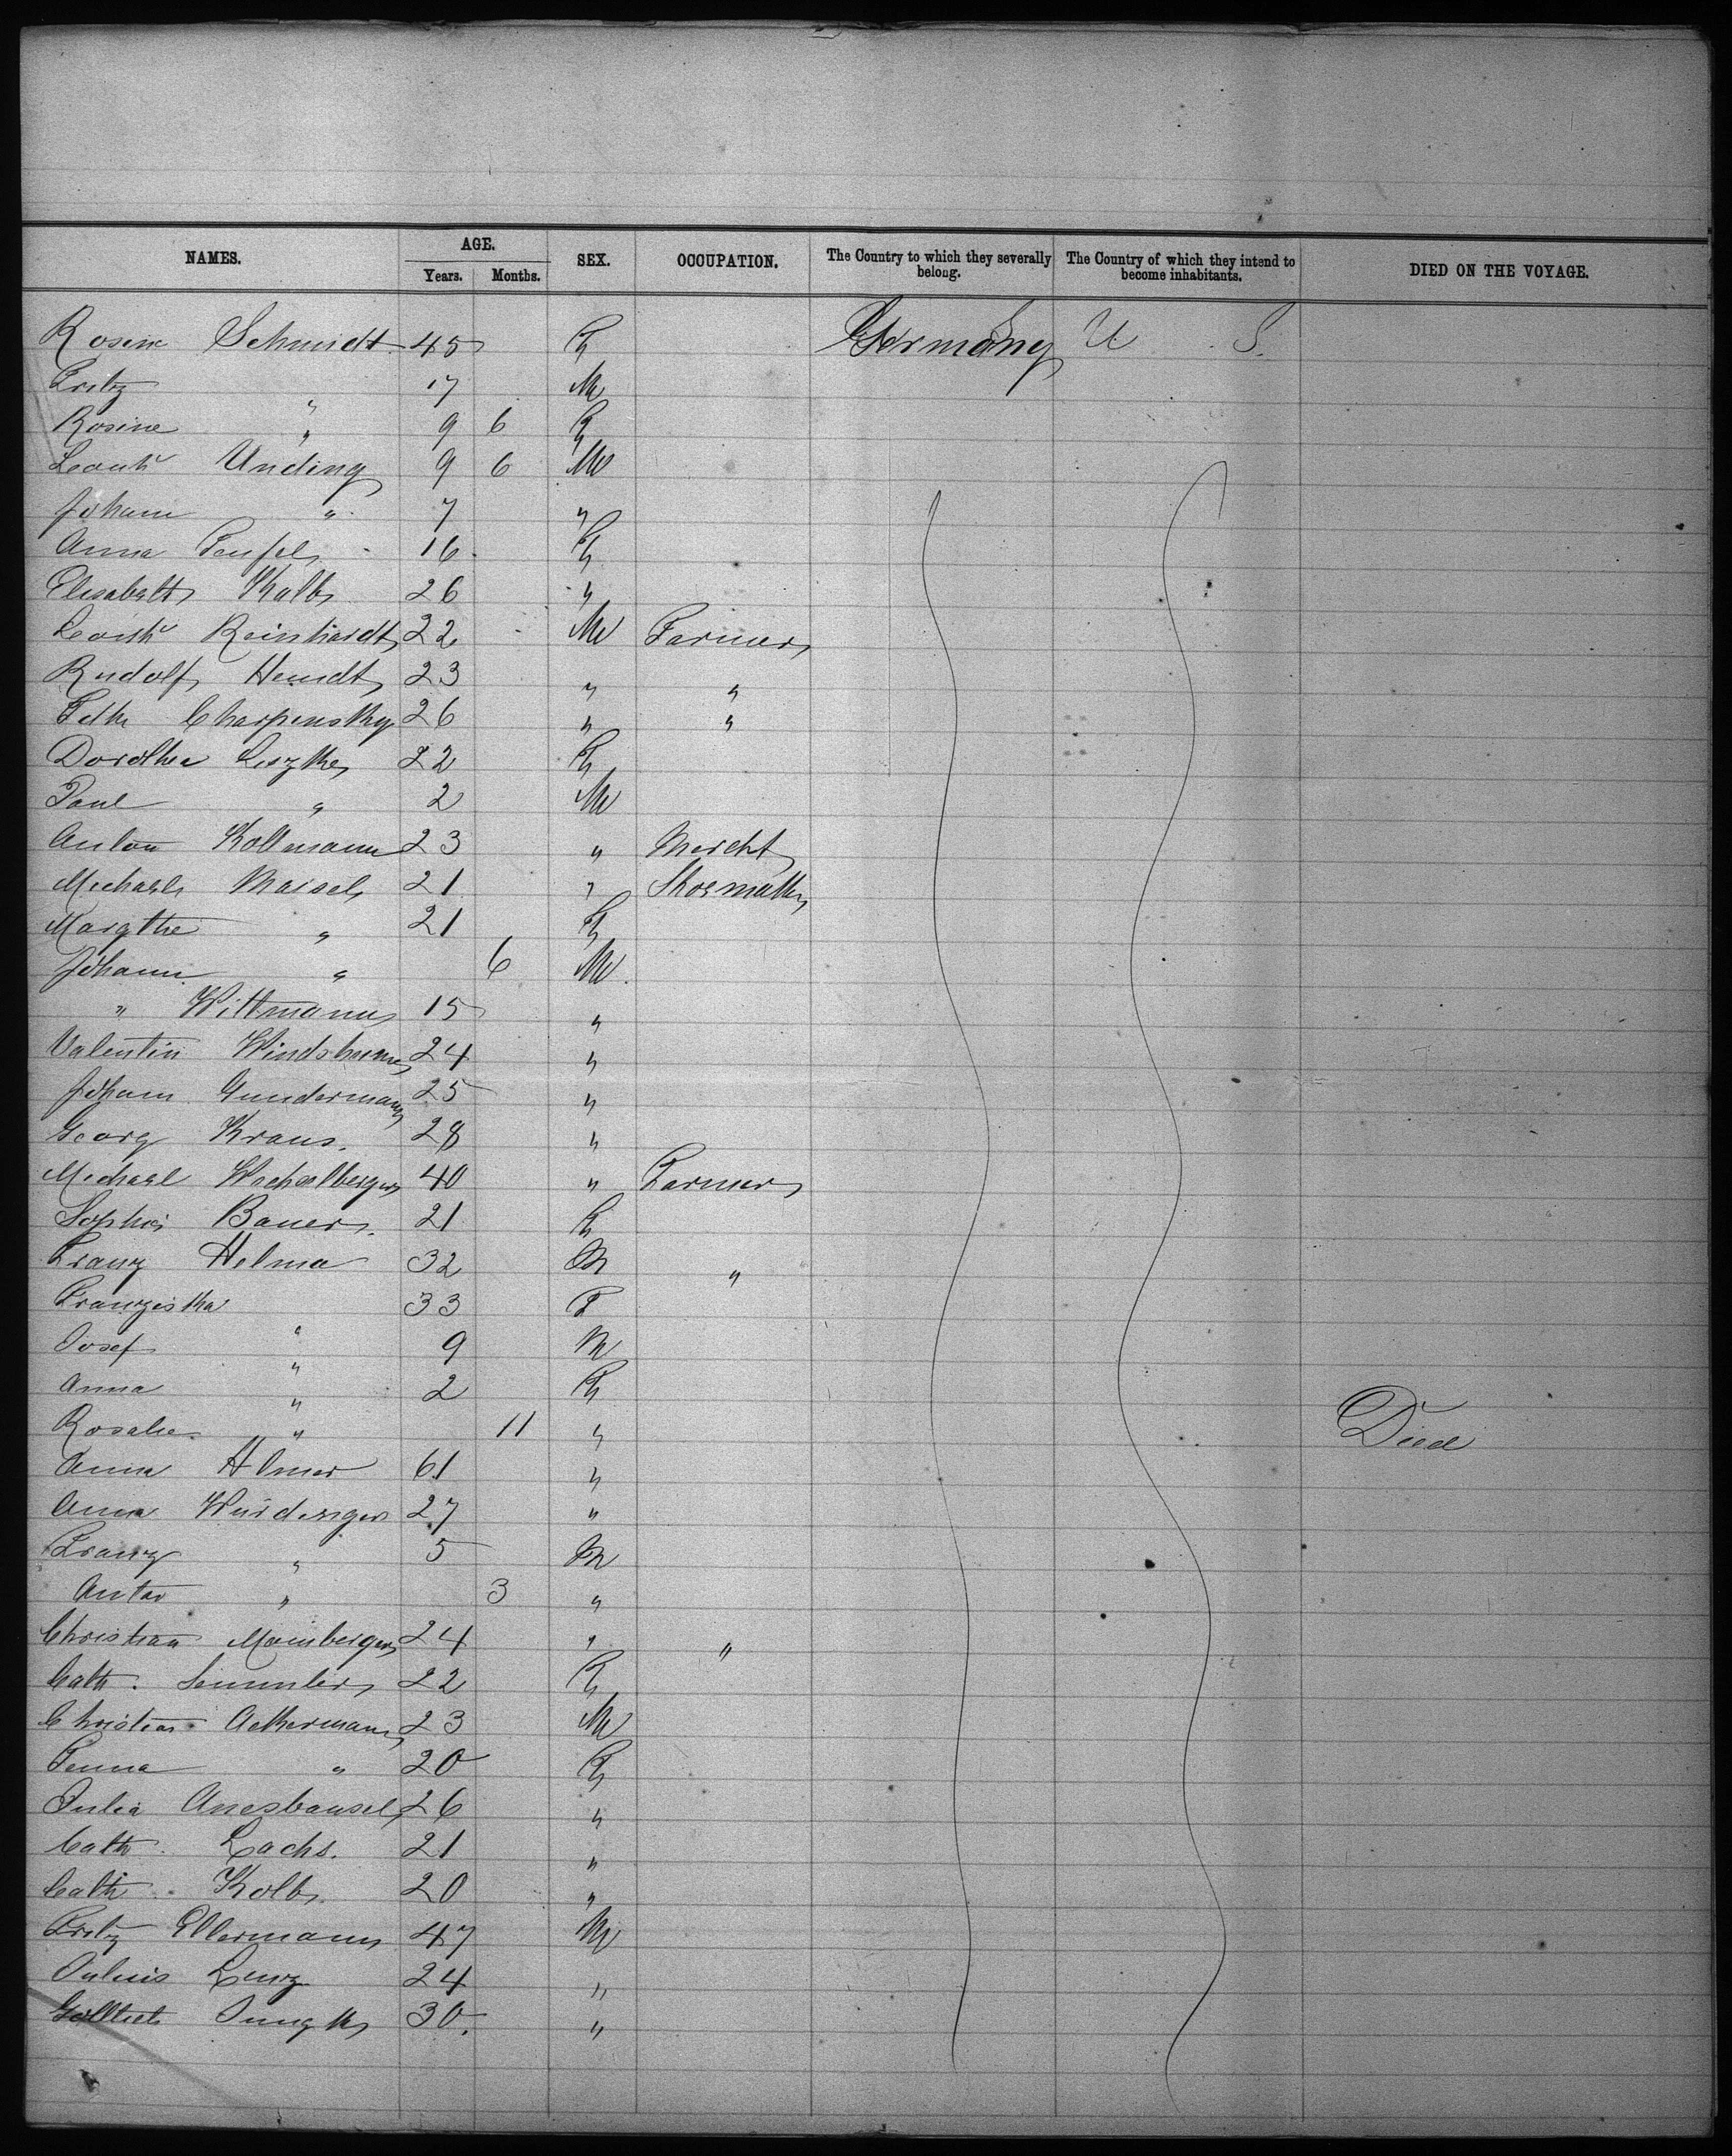 NAMES. AGE. SEX. OCCUPATION. The Country to which they severally belong. The Country of which they intend to become inhabitants. DIED ON THE VOYAGE.
Years. Months.
Rosine Schmidt 45 F Germany U S.
Fritz " 17 M
Rosine " 9 6 F
Unding 9 6 M
Johann " 7 "
Anna Teufel 16 F
Elisabeth Kalb 26 "
Reinhardt 22 M Farmer
Rudolf Hendt 23 " "
Charpensky 26 " "
Dorothea Liszke 22 F
Paul " 2 M
Anton Kollmann 23 " Mercht
Michael Maisel 21 " Shoemaker
Margthe " 21 F
Johann " 6 M
" Wittmann 15 "
Valentin 24 "
Johann Gundermann 25 "
Georg Kraus. 28 "
Michael Wachselberger 40 " Farmer
Sophie Bauer. 21 F
Franz Helma 32 M "
Franziska " 33 F
Josef " 9 M
Anna " 2 F
Rosalie " 11 " Died
Anna Almer 61 "
Anna Wurdinger 27 "
Franz " 5 M
Anton " 3 "
Christian Mainberger 24 " "
Cath. Semmler 22 F
Christian Ackermann 23 M
" 20 F
Julia 26 "
Cath. Lachs. 21 "
Cath. Kolb 20 "
Fritz Ellermann 47 M
Julius Lenz 24 "
Gottlieb Jungk 30. "